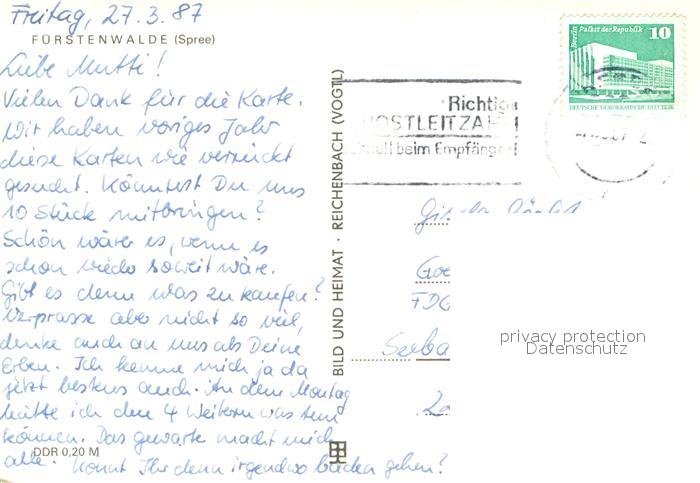 Freitag, 27.3.87
FÜRSTENWALDE (Spree)
Liebe Mutti!
Vielen Dank für die Karte.
Wir haben voriges Jahr
diese Karten wie verrückt
gesucht. Könntest Du uns
10 Stück mitbringen?
Schön wäre es, wenn es
schon wieder soweit wäre.
Gibt es denn was zu kaufen?
Verprasse aber nicht so viel,
denke auch an uns als Deine
Erben. Ich kenne mich ja da
jetzt bestens auch. An dem Montag
hätte ich den 4 Weibern was tun
können. Das gewarte macht mich
alle. Könnt Ihr denn irgendwo baden gehen?
DDR 0,20 M
BILD UND HEIMAT · REICHENBACH (VOGTL)
Richtige
POSTLEITZAHL
beim Empfänger!
Berlin Palast der Republik
10
DEUTSCHE DEMOKRATISCHE REPUBLIK
Goe
FDG
Seeba
privacy protection
Datenschutz